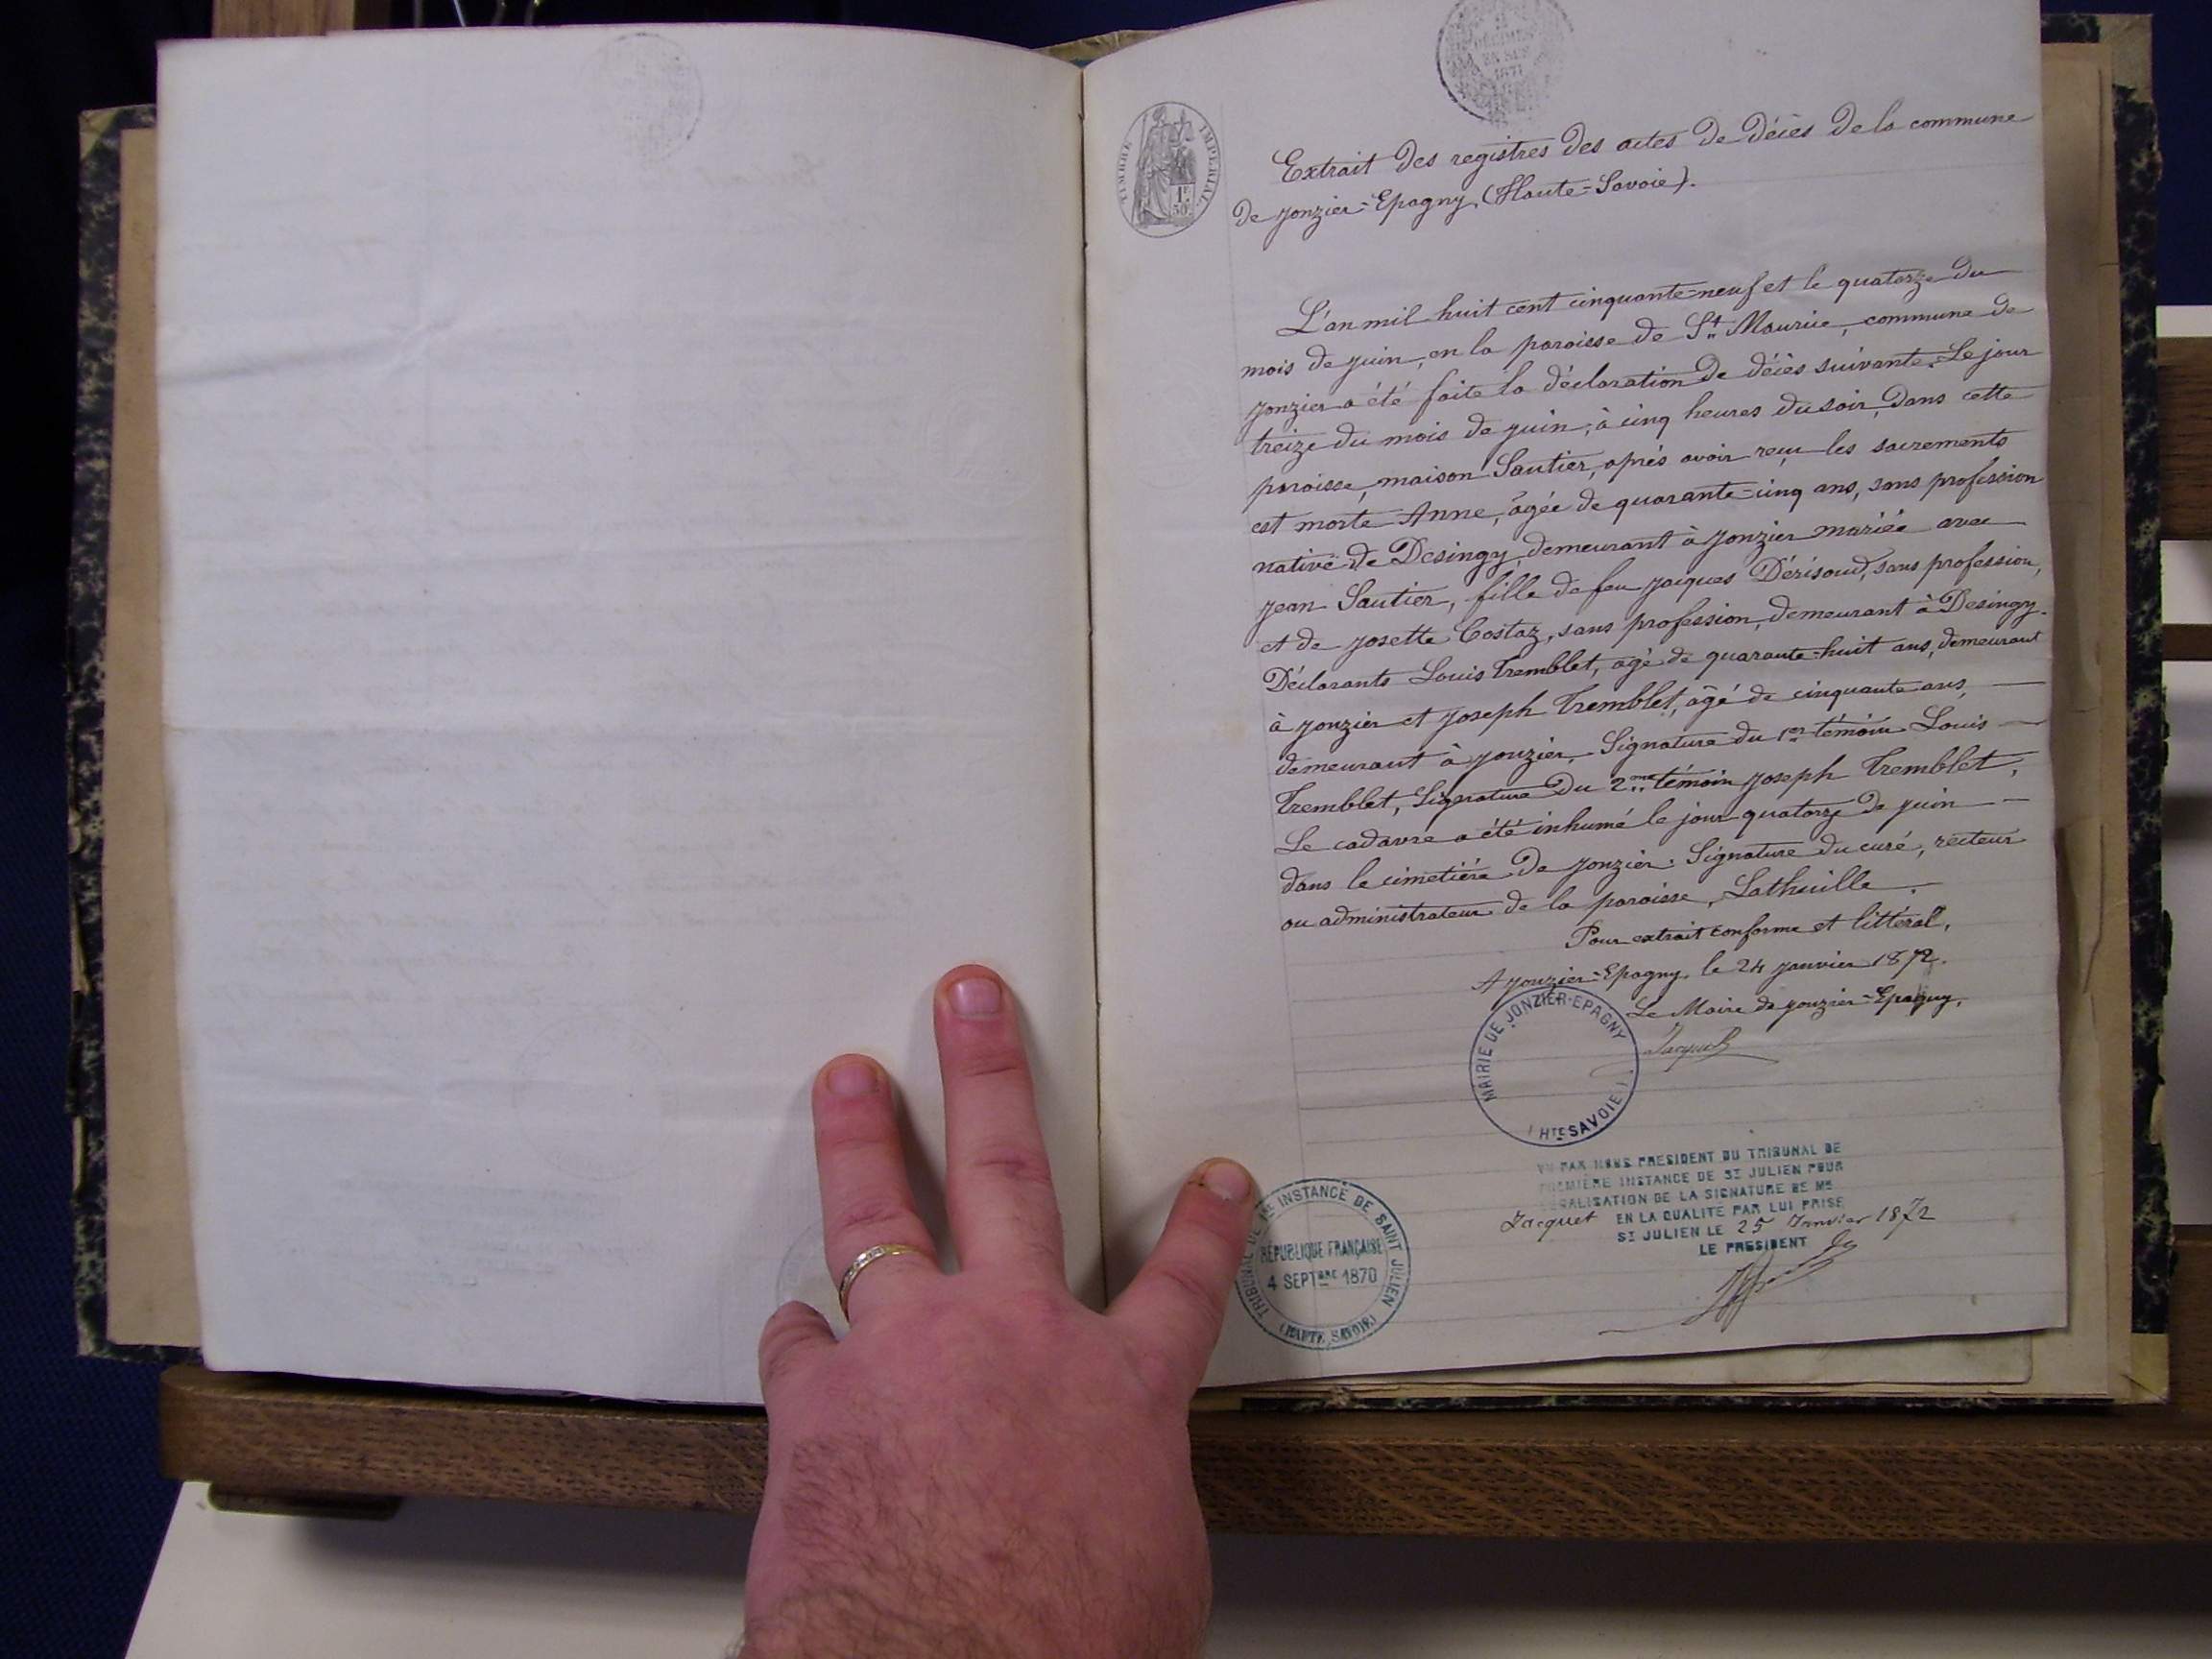 2
DÉCIMES
EN SUS
1871
TIMBRE IMPERIAL
1F
50c
Extrait des registres des actes de décès de la commune
de Jonzier-Epagny, (Haute-Savoie).
L'an mil huit cent cinquante-neuf et le quatorze du
mois de juin, en la paroisse de St Maurice, commune de
Jonzier a été faite la déclaration de décès suivante. Le jour
treize du mois de juin, à cinq heures du soir, dans cette
paroisse, maison Sautier, après avoir reçu les sacrements
est morte Anne, âgée de quarante-cinq ans, sans profession
native de Desingy, demeurant à Jonzier mariée avec
Jean Sautier, fille de feu Jacques Dérisoud, sans profession,
et de Josette Costaz, sans profession, demeurant à Desingy.
Déclarants Louis Tremblet, âgé de quarante-huit ans, demeurant
à Jonzier et Joseph Tremblet, âgé de cinquante ans,
demeurant à Jonzier. Signature du 1er témoin Louis
Tremblet, Signature du 2me témoin Joseph Tremblet,
Le cadavre a été inhumé le jour quatorze de juin
dans le cimetière de Jonzier. Signature du curé, recteur
ou administrateur de la paroisse, Lathuille.
Pour extrait conforme et littéral,
A Jonzier-Epagny, le 24 janvier 1872.
Le Maire de Jonzier-Epagny,
Jacquet
MAIRIE DE JONZIER-EPAGNY
(HTE SAVOIE)
VU PAR NOUS PRESIDENT DU TRIBUNAL DE
PREMIÈRE INSTANCE DE ST JULIEN POUR
LEGALISATION DE LA SIGNATURE DE MR
Jacquet EN LA QUALITE PAR LUI PRISE
ST JULIEN LE 25 Janvier 1872
LE PRESIDENT
TRIBUNAL DE 1RE INSTANCE DE SAINT JULIEN
RÉPUBLIQUE FRANÇAISE
4 SEPTBRE 1870
(HAUTE SAVOIE)